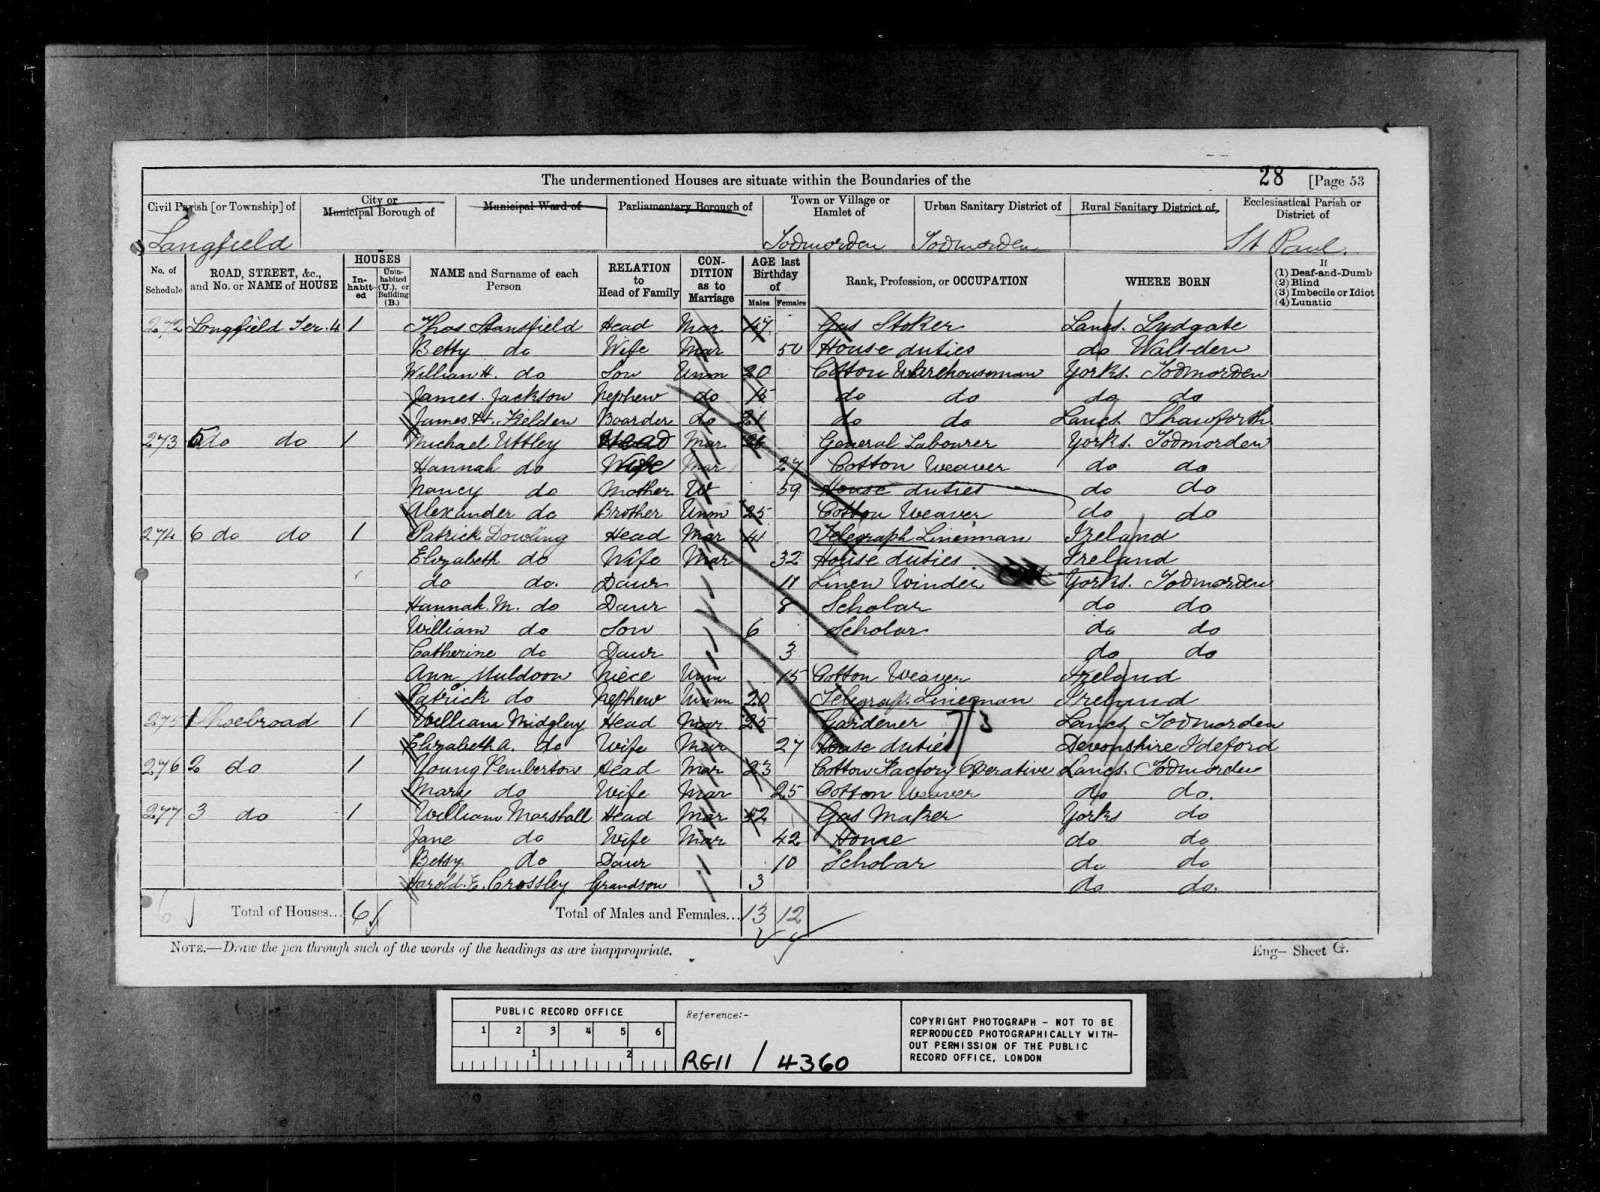 The undermentioned Houses are situate within the Boundaries of the 28 [Page 53
Civil Parish [or Township] of City or Municipal Borough of Municipal Ward of Parliamentary Borough of Town or Village or Hamlet of Urban Sanitary District of Rural Sanitary District of Ecclesiastical Parish or District of
Langfield Todmorden Todmorden St Paul.
No. of Schedule ROAD, STREET, &c., and No. or NAME of HOUSE HOUSES Inhabited Uninhabited (U.), or Building (B.) NAME and Surname of each Person RELATION to Head of Family CONDITION as to Marriage AGE last Birthday of Males Females Rank, Profession, or OCCUPATION WHERE BORN If (1) Deaf-and-Dumb (2) Blind (3) Imbecile or Idiot (4) Lunatic
272 Longfield Ter. 4 1 Thos Stansfield Head Mar 47 Gas Stoker Lancs. Lydgate
Betty do Wife Mar 50 House duties do Walsden
William H. do Son Unm 20 Cotton Warehouseman Yorks. Todmorden
James Jackson Nephew do do do do do
James H. Fielden Boarder do 21 do do Lancs. Shawforth
273 5 do do 1 Michael Uttley Head Mar General Labourer Yorks. Todmorden
Hannah do Wife Mar 27 Cotton Weaver do do
Nancy do Mother W 59 House duties do do
Alexander do Brother Unm 25 Cotton Weaver do do
274 6 do do 1 Patrick Dowling Head Mar 41 Telegraph Lineman Ireland
Elizabeth do Wife Mar 32 House duties Ireland
do do. Daur 11 Linen Winder Yorks. Todmorden
Hannah M. do Daur 8 Scholar do do
William do Son 6 Scholar do do
Catherine do Daur 3 do do
Ann Muldoon Niece Unm 15 Cotton Weaver Ireland
Patrick do Nephew Unm 20 Telegraph Lineman Ireland
275 1 Shoebroad 1 William Midgley Head Mar 25 Gardener 7/3 Lancs Todmorden
Elizabeth A. do Wife Mar 27 House duties Devonshire Ideford
276 2 do 1 Young Pemberton Head Mar 23 Cotton Factory Operative Lancs. Todmorden
Mary do Wife Mar 25 Cotton Weaver do do.
277 3 do 1 William Marshall Head Mar 42 Gas Maker Yorks do
Jane do Wife Mar 42 House do do
Betsy do Daur 10 Scholar do do
Harold E. Crossley Grandson 3 do do.
6 Total of Houses... 6 Total of Males and Females... 13 12
NOTE.—Draw the pen through such of the words of the headings as are inappropriate. Eng— Sheet G.
PUBLIC RECORD OFFICE
1 2 3 4 5 6
1 2
Reference:-
RG11 / 4360
COPYRIGHT PHOTOGRAPH - NOT TO BE
REPRODUCED PHOTOGRAPHICALLY WITH-
OUT PERMISSION OF THE PUBLIC
RECORD OFFICE, LONDON